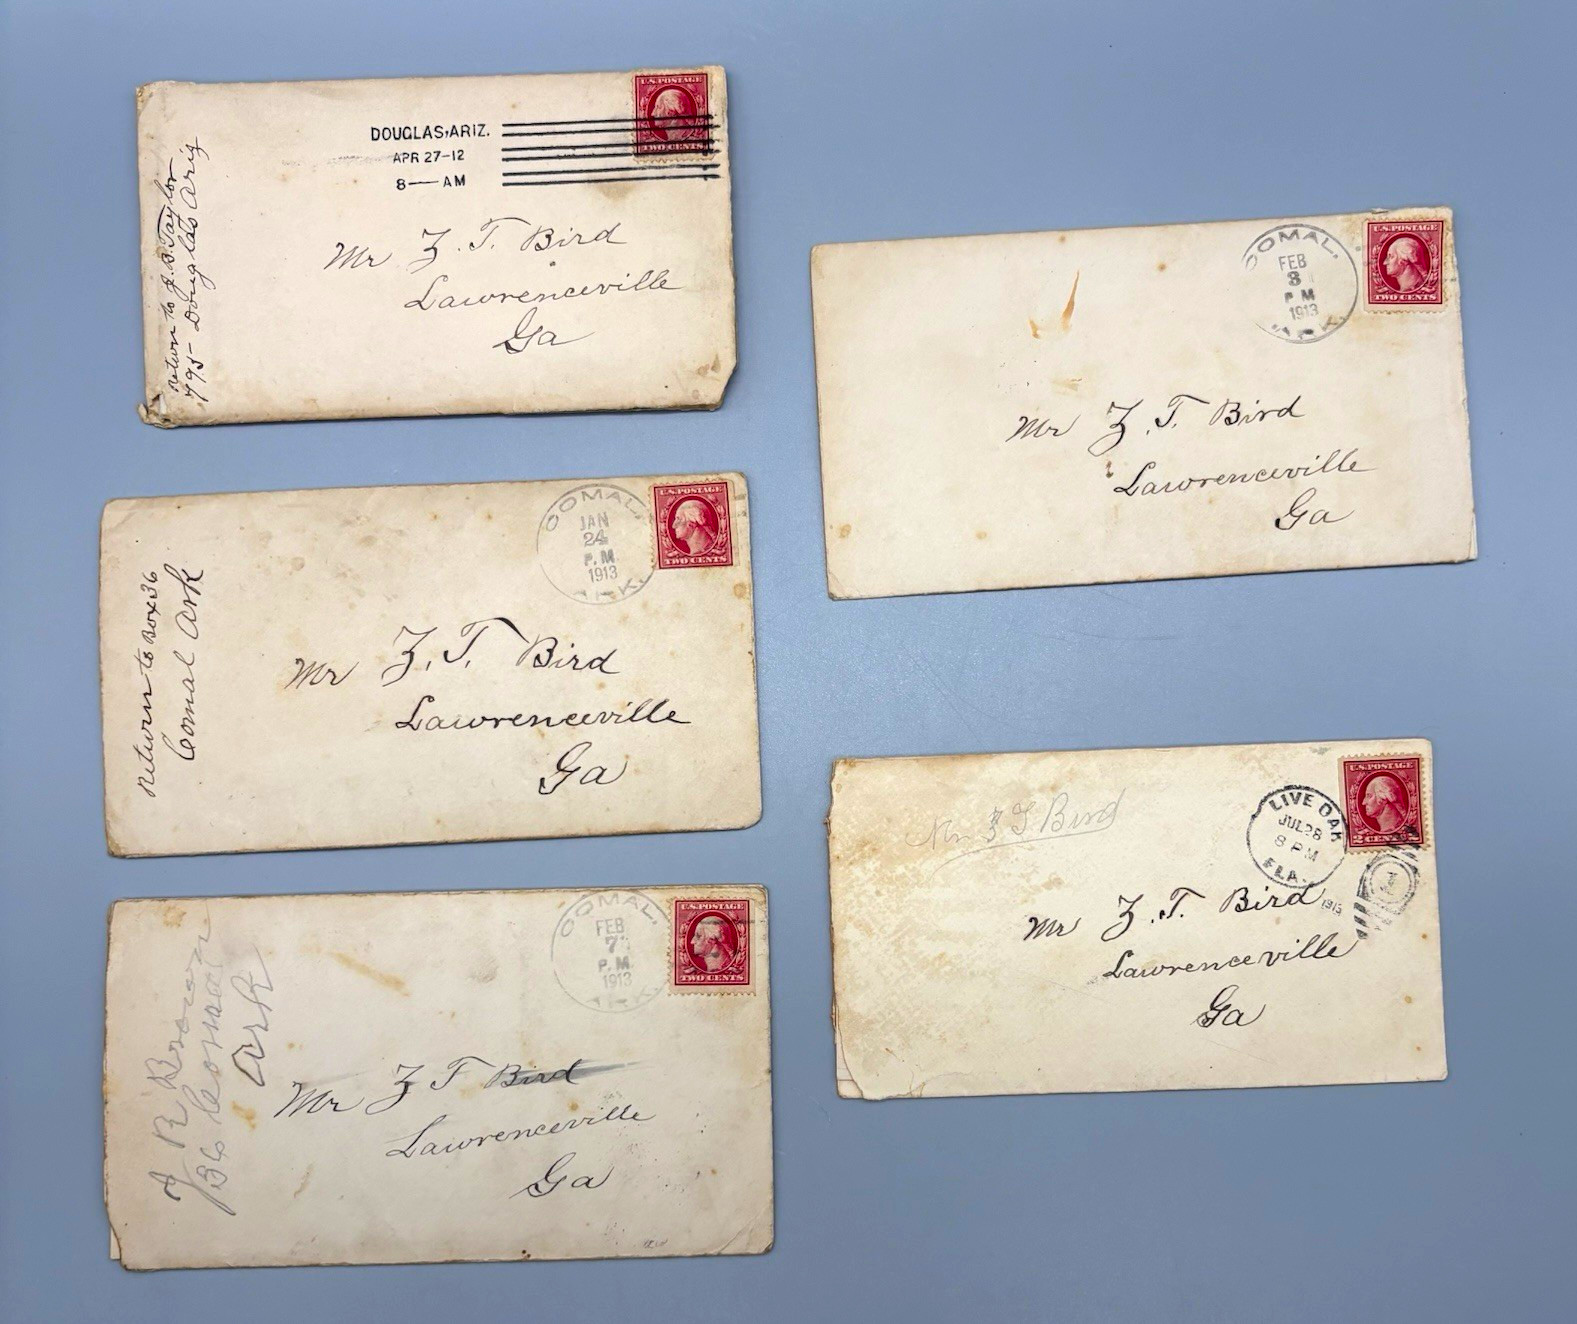 Return to J. B. Taylor
795 - Douglas Ariz
DOUGLAS, ARIZ.
APR 27-12
8 — AM
U.S. POSTAGE
TWO CENTS
Mr Z. T. Bird
Lawrenceville
Ga
Return to Box 36
Comal Ark
COMAL.
JAN
24
P.M.
1913
ARK.
U.S. POSTAGE
TWO CENTS
Mr Z. T. Bird
Lawrenceville
Ga
J R Brown
36 Comal
Ark
COMAL.
FEB
7
P.M.
1913
ARK.
U.S. POSTAGE
TWO CENTS
Mr Z T Bird
Lawrenceville
Ga
COMAL.
FEB
8
P M
1913
ARK.
U.S. POSTAGE
TWO CENTS
Mr Z. T. Bird
Lawrenceville
Ga
Mr Z T Bird
LIVE OAK
JUL 28
8 PM
FLA.
1913
U.S. POSTAGE
2 CENTS 2
Mr Z. T. Bird
Lawrenceville
Ga